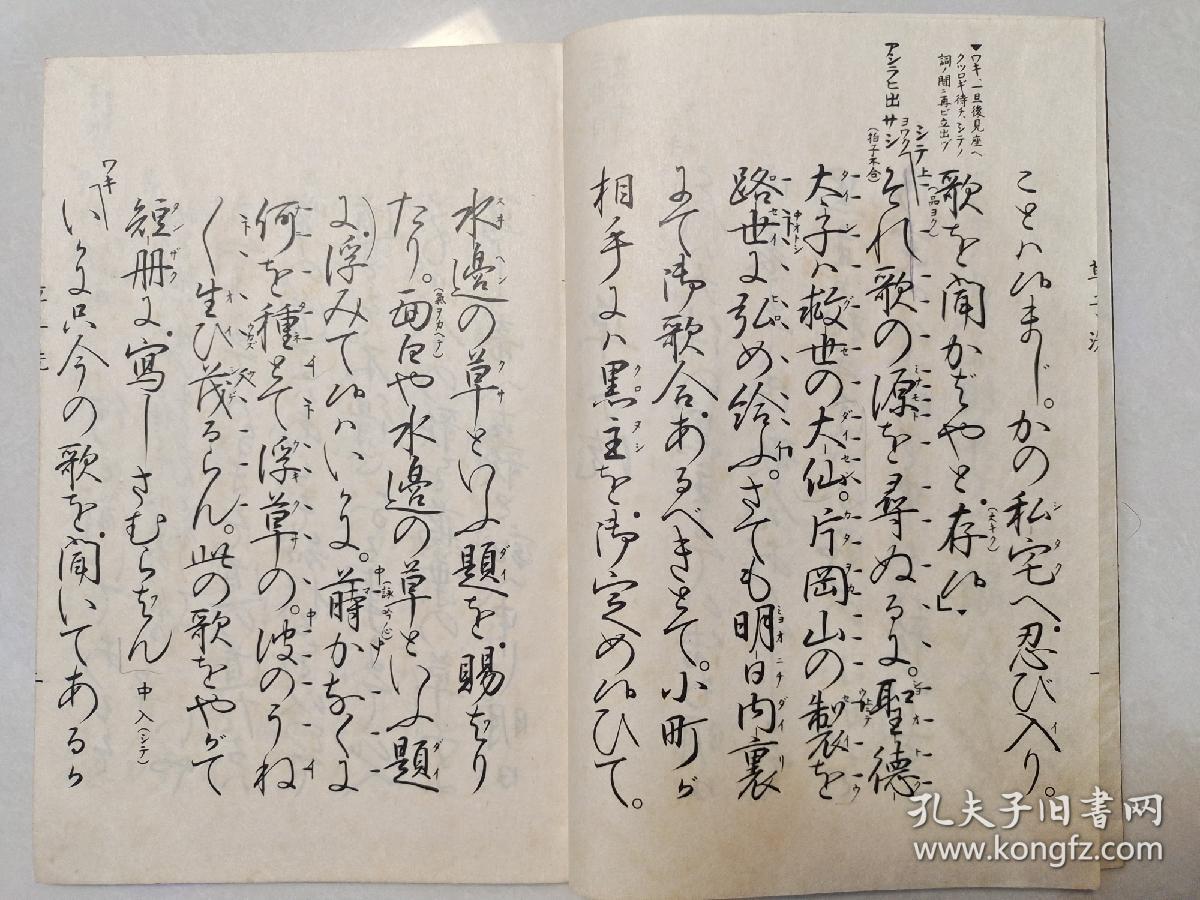 ▼ワキ、一旦後見座へ
クツロギ待チ、シテノ
詞ノ間ニ再ビ立出ヅ
ことハ候まじ。かの私宅へ忍び入り。
歌を聞かばやと存候」
アシラヒ出 サシ
シテ上
それ歌の源を尋ぬるに。聖德
太子ハ救世の大仙。片岡山の製を
路世に弘め給ふ。さても明日内裏
にて御歌合あるべきとて。小町が
相手にハ黒主を御定め候ひて。
水邉の草といふ題を賜はり
たり。面白や水邉の草といふ題
に浮みて候ハいかに。蒔かなくに
何を種とて浮草の。波のうね
〱生ひ茂るらん。此の歌をやがて
短册に寫しさむらはん
中入(シテ)
ワキ
いかに只今の歌を聞いてあるか
孔夫子旧书网
www.kongfz.com